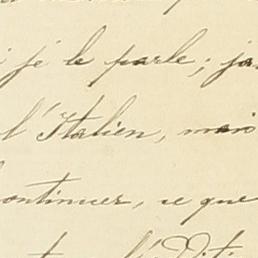 je le parle; ja
l'Italien, mais
continuer, ce que